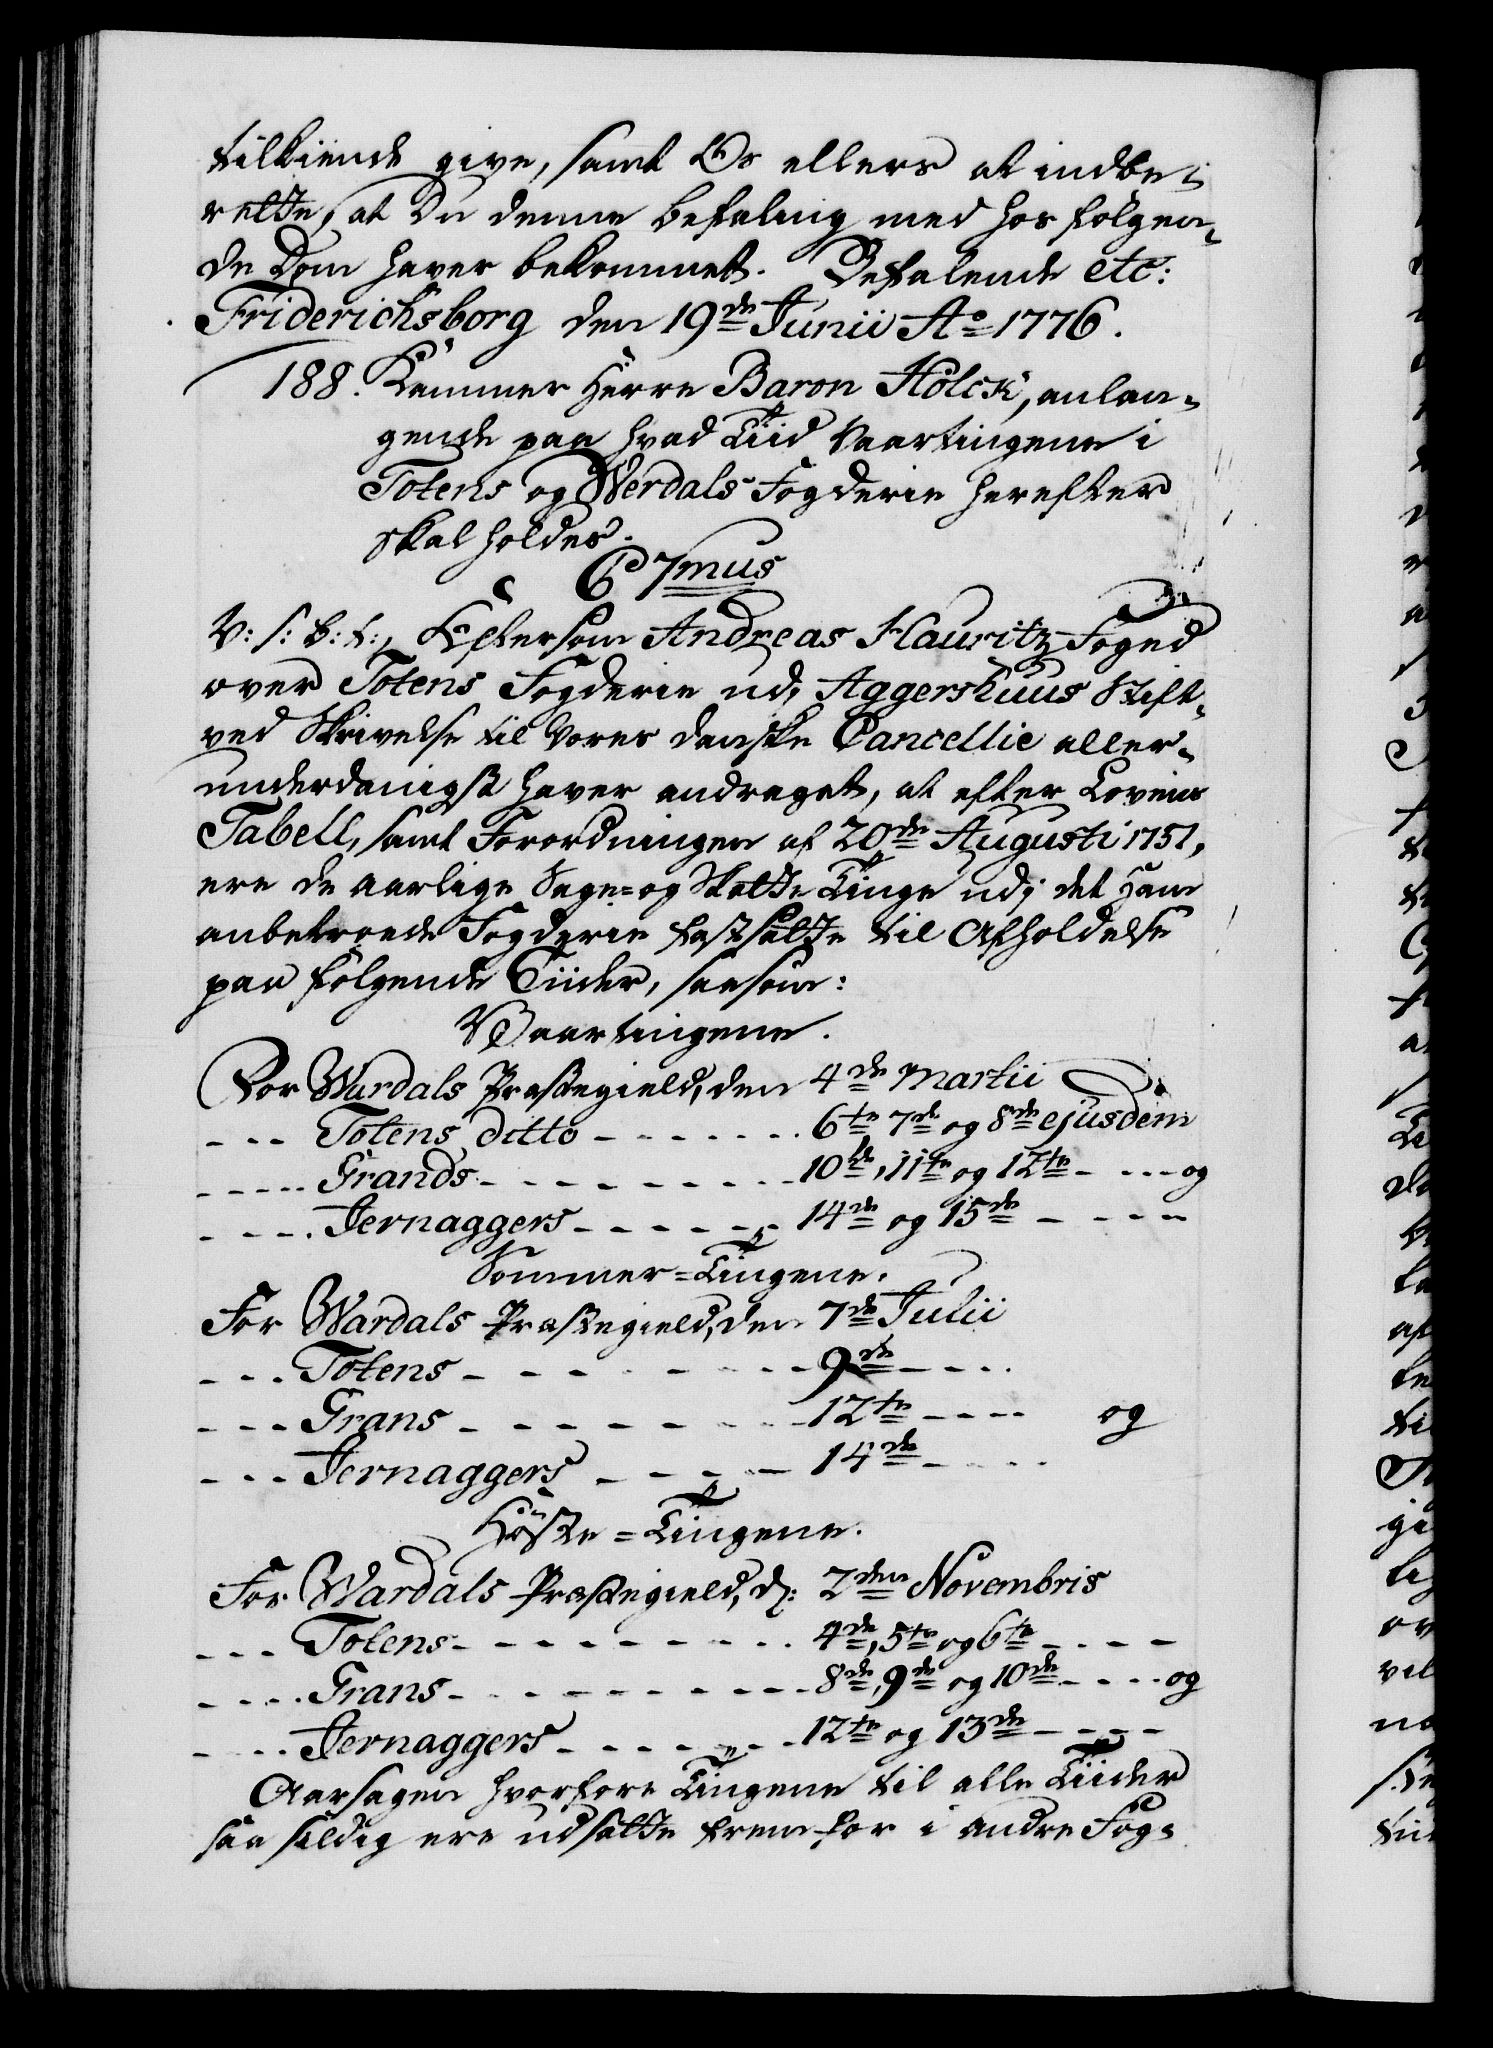 tilkiende give, samt Os ellers at indbe-
rette, at Du denne befaling med hos følgen-
de Dom haver bekommet. Befalende etc:
Friderichsborg den 19de Junii Ao 1776.
188. Kammer Herre Baron Holck, anlan-
gende paa hvad Tiid Vaartingene i
Totens og Werdals Fogderie herefter
skal holdes.
C 7mus
V: s: b: t:, Eftersom Andreas Hauritz Foged
over Totens Fogderie udj Aggershuus Stift,
ved Skrivelse til Vores danske Cancellie aller-
underdanigst haver andraget, at efter Lovens
Tabell, samt Forordningen af 20de Augusti 1751,
ere de aarlige Sage- og Skatte Tinge udj det ham
anbetroede Fogderie fastsatte til Afholdelse
paa følgende Tiider, saasom:
Vaartingene.
For Wardals Præstegield, den 4de Martii
--- Totens ditto -------- 6te 7de og 8de ejusdem
----- Grands ---------- 10de, 11te og 12te ---- og
----. Jernaggers ------ 14de og 15de -----
Sommer-Tingene.
For Wardals Præstegield, den 7de Julii
--- Totens -------- 9de ----
--- Grans -------- 12te ---- og
--- Jernaggers ----- 14de ----
Høste-Tingene.
For Wardals Præstegield, d: 2den Novembris
--- Totens --------- 4de, 5te og 6te ----
---- Grans ----------- 8de, 9de og 10de ---- og
---- Jernaggers ------- 12te og 13de ----
Aarsagen hvorfore Tingene til alle Tiider
saa sildig ere udsatte frem for i andre Fog-